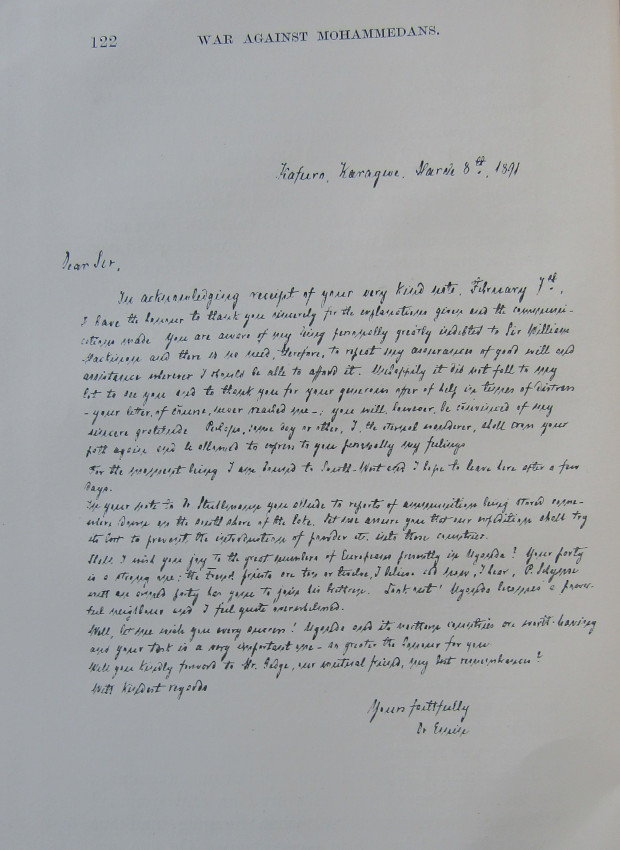 122
WAR AGAINST MOHAMMEDANS.
Kafuro, Karagwe. March 8th, 1891
Dear Sir,
In acknowledging receipt of your very kind note, February 7th,
I have the honour to thank you sincerely for the explanations given and the communi-
cations made You are aware of my being personally greatly indebted to Sir William
Mackinnon and there is no need, therefore, to repeat my assurances of good will and
assistance wherever I should be able to afford it. Unhappily it did not fall to my
lot to see you and to thank you for your generous offer of help in times of distress
- your letter, of course, never reached me -; you will, however, be convinced of my
sincere gratitude Perhaps, some day or other, I, the eternal wanderer, shall cross your
path again and be allowed to express to you personally my feelings
For the moment being I am bound to South-West and I hope to leave here after a few
days.
In your note to Dr Stuhlmann you allude to reports of ammunition being stored some-
where on the south shore of the lake. Let me assure you that our expedition shall try
its best to prevent the introduction of powder etc. into those countries.
Shall I wish you joy to the great numbers of Europeans presently in Uganda? Your party
is a strong one; the french priests are ten or twelve, I believe and now, I hear, P. Schynse
with an armed party has gone to join his brethren. Look out! Uganda becomes a power-
ful neighbour and I feel quite overwhelmed.
Well, let me wish you every success! Uganda and its northern countries are worth having
and your task is a very important one - so greater the honour for you
Will you kindly forward to Mr. Gedge, our mutual friend, my best remembrances?
With kindest regards
Yours faithfully
Dr Emin